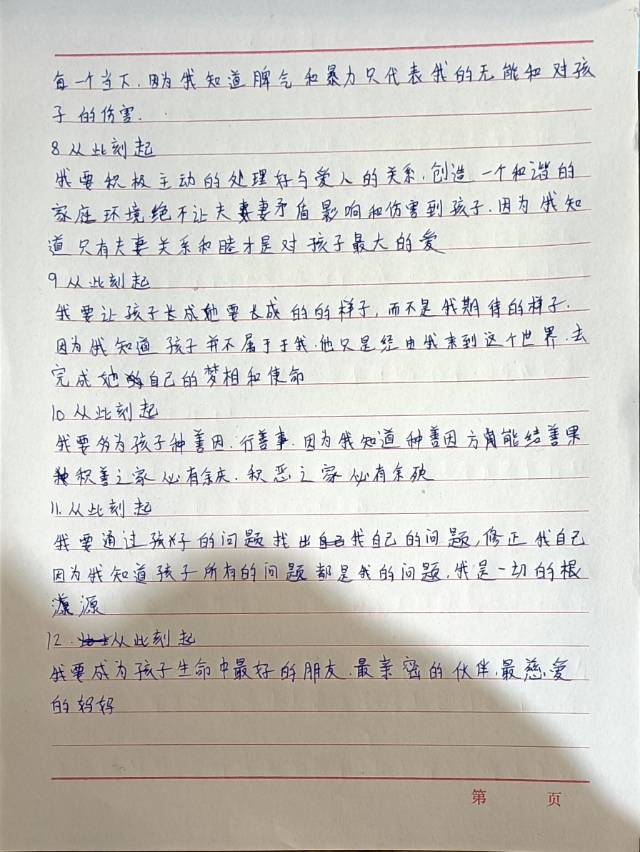 每一个当下，因为我知道脾气和暴力只代表我的无能和对孩
子的伤害.
8 从此刻起
我要积极主动的处理好与爱人的关系，创造一个和谐的
家庭环境绝不让夫妻矛盾影响和伤害到孩子.因为我知
道只有夫妻关系和睦才是对孩子最大的爱
9 从此刻起
我要让孩子长成她要长成的的样子，而不是我期待的样子.
因为我知道孩子并不属于于我.他只是经由我来到这个世界.去
完成她自己的梦相和使命
10 从此刻起
我要多为孩子种善因.行善事.因为我知道种善因方能结善果
积善之家必有余庆.积恶之家必有余殃
11.从此刻起
我要通过孩子的问题找出我自己的问题，修正我自己
因为我知道孩子所有的问题都是我的问题，我是一切的根
源
12.从此刻起
我要成为孩子生命中最好的朋友.最亲密的伙伴.最慈爱
的妈妈
第 页